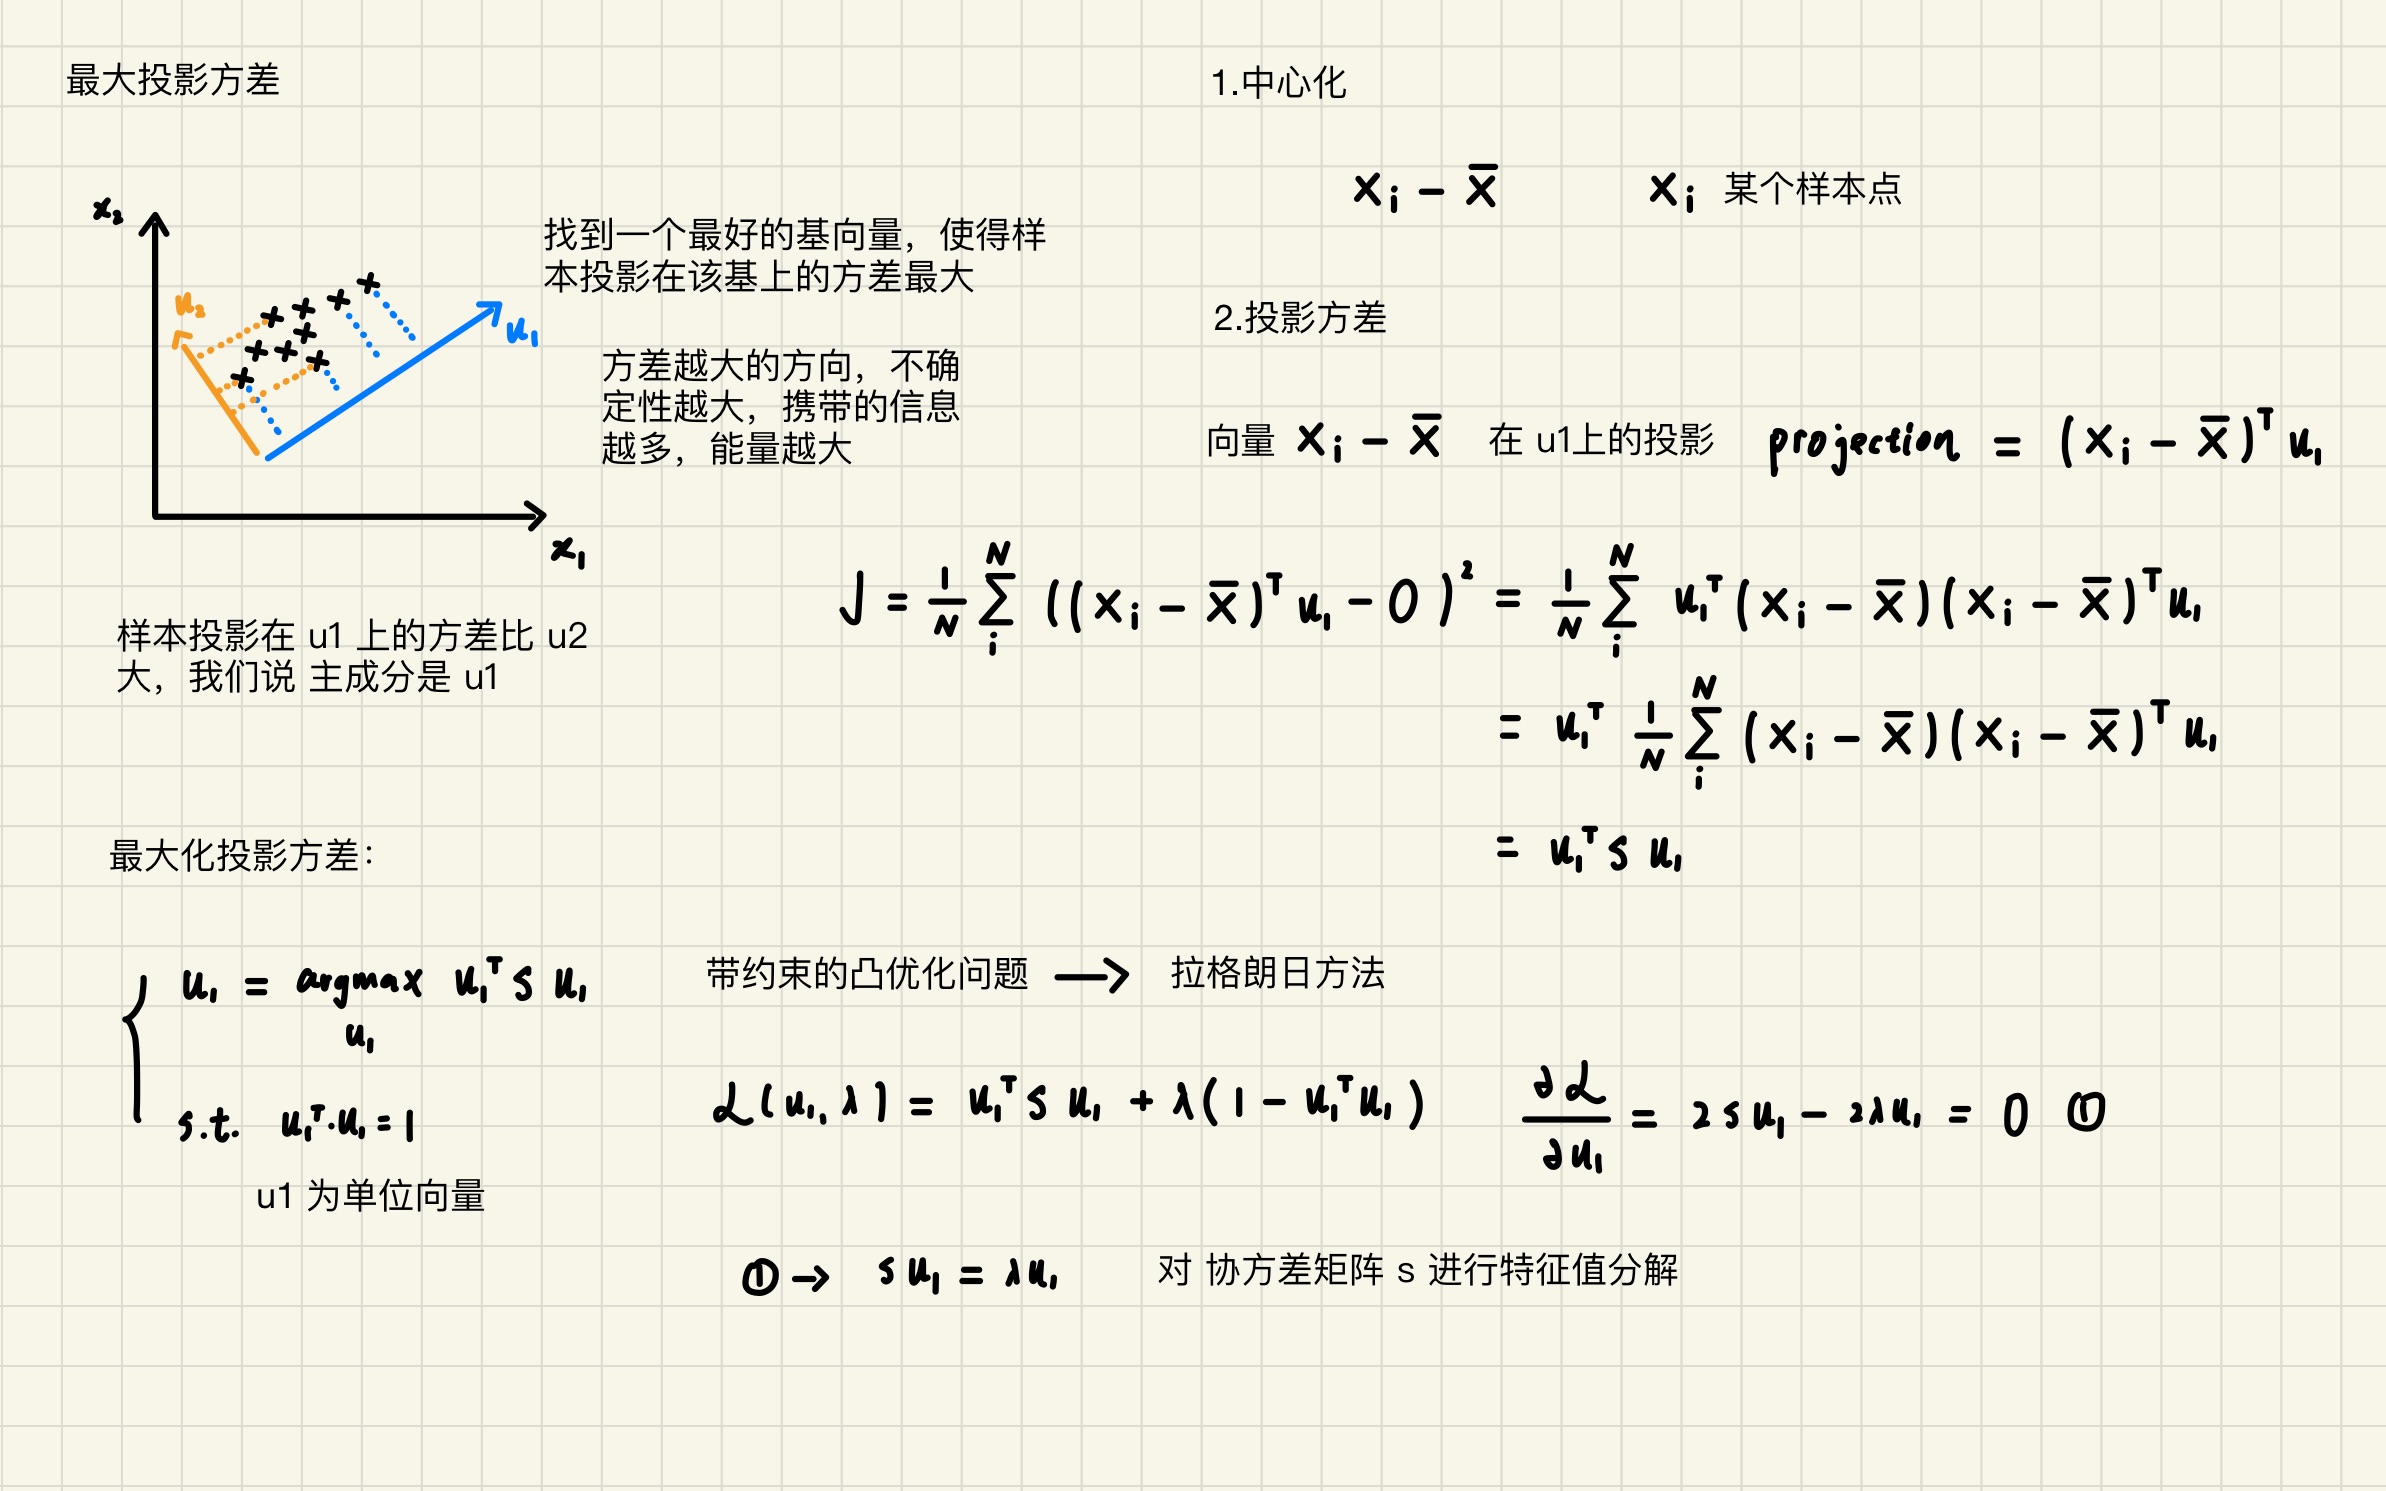 最大投影方差
x₂
u₂
u₁
x₁
找到一个最好的基向量，使得样
本投影在该基上的方差最大
方差越大的方向，不确
定性越大，携带的信息
越多，能量越大
样本投影在 u1 上的方差比 u2
大，我们说 主成分是 u1
1.中心化
xᵢ − x̄ xᵢ 某个样本点
2.投影方差
向量 xᵢ − x̄ 在 u1上的投影 projection = (xᵢ − x̄)ᵀ u₁
J = 1/N ∑ᵢᴺ ((xᵢ − x̄)ᵀ u₁ − 0)² = 1/N ∑ᵢᴺ u₁ᵀ(xᵢ − x̄)(xᵢ − x̄)ᵀ u₁
= u₁ᵀ 1/N ∑ᵢᴺ (xᵢ − x̄)(xᵢ − x̄)ᵀ u₁
= u₁ᵀ s u₁
最大化投影方差：
u₁ = argmax u₁ᵀ s u₁
u₁
s.t. u₁ᵀ·u₁ = 1
u1 为单位向量
带约束的凸优化问题 → 拉格朗日方法
ℒ(u₁, λ) = u₁ᵀ s u₁ + λ(1 − u₁ᵀ u₁) ∂ℒ/∂u₁ = 2 s u₁ − 2λu₁ = 0 ①
① → s u₁ = λu₁ 对 协方差矩阵 s 进行特征值分解